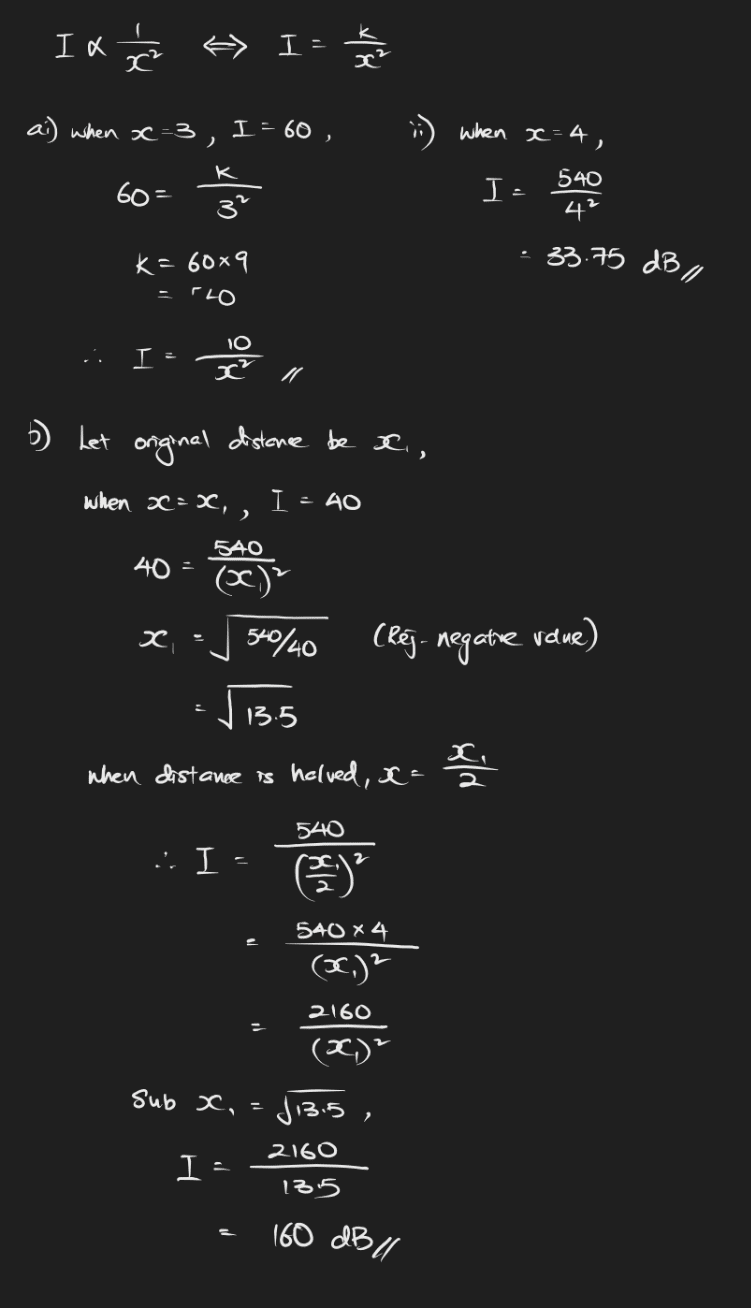 I ∝ 1/x² ⟺ I = k/x²
ai) when x=3, I = 60,
60 = k/3²
k = 60×9
=
∴ I = 10/x² //
ii) when x=4,
I = 540/4²
= 33.75 dB //
b) Let original distance be x₁,
when x = x₁, I = 40
40 = 540/(x₁)²
x₁ = √540/40 (Rej. negative value)
= √13.5
when distance is halved, x = x₁/2
∴ I = 540/(x₁/2)²
= 540×4/(x₁)²
= 2160/(x₁)²
Sub x₁ = √13.5,
I = 2160/13.5
= 160 dB //